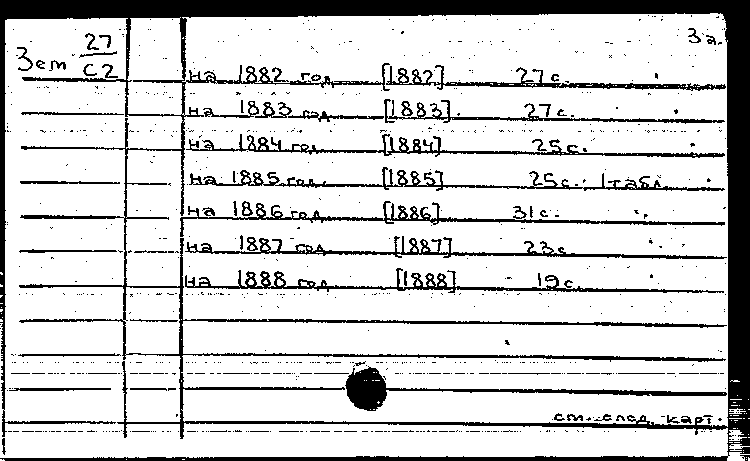 3а.
Зем 27/С2
на 1882 год [1882] 27с.
на 1883 год [1883]. 27с.
на 1884 год [1884] 25с.
на 1885 год. [1885] 25с.; 1табл.
на 1886 год. [1886] 31с.
на 1887 год [1887] 23с.
на 1888 год [1888] 19с.
см. след. карт.